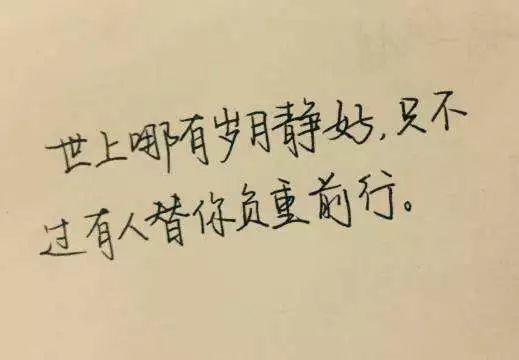 世上哪有岁月静好,只不
过有人替你负重前行。